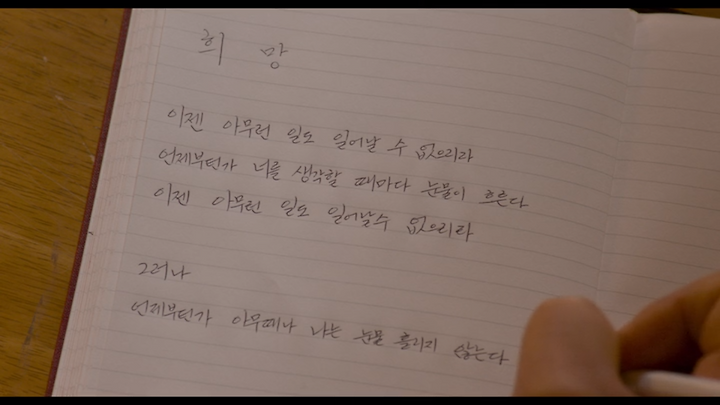 희 망
이젠 아무런 일도 일어날 수 없으리라
언제부턴가 너를 생각할 때마다 눈물이 흐른다
이젠 아무런 일도 일어날수 없으리라
그러나
언제부턴가 아무때나 나는 눈물 흘리지 않는다